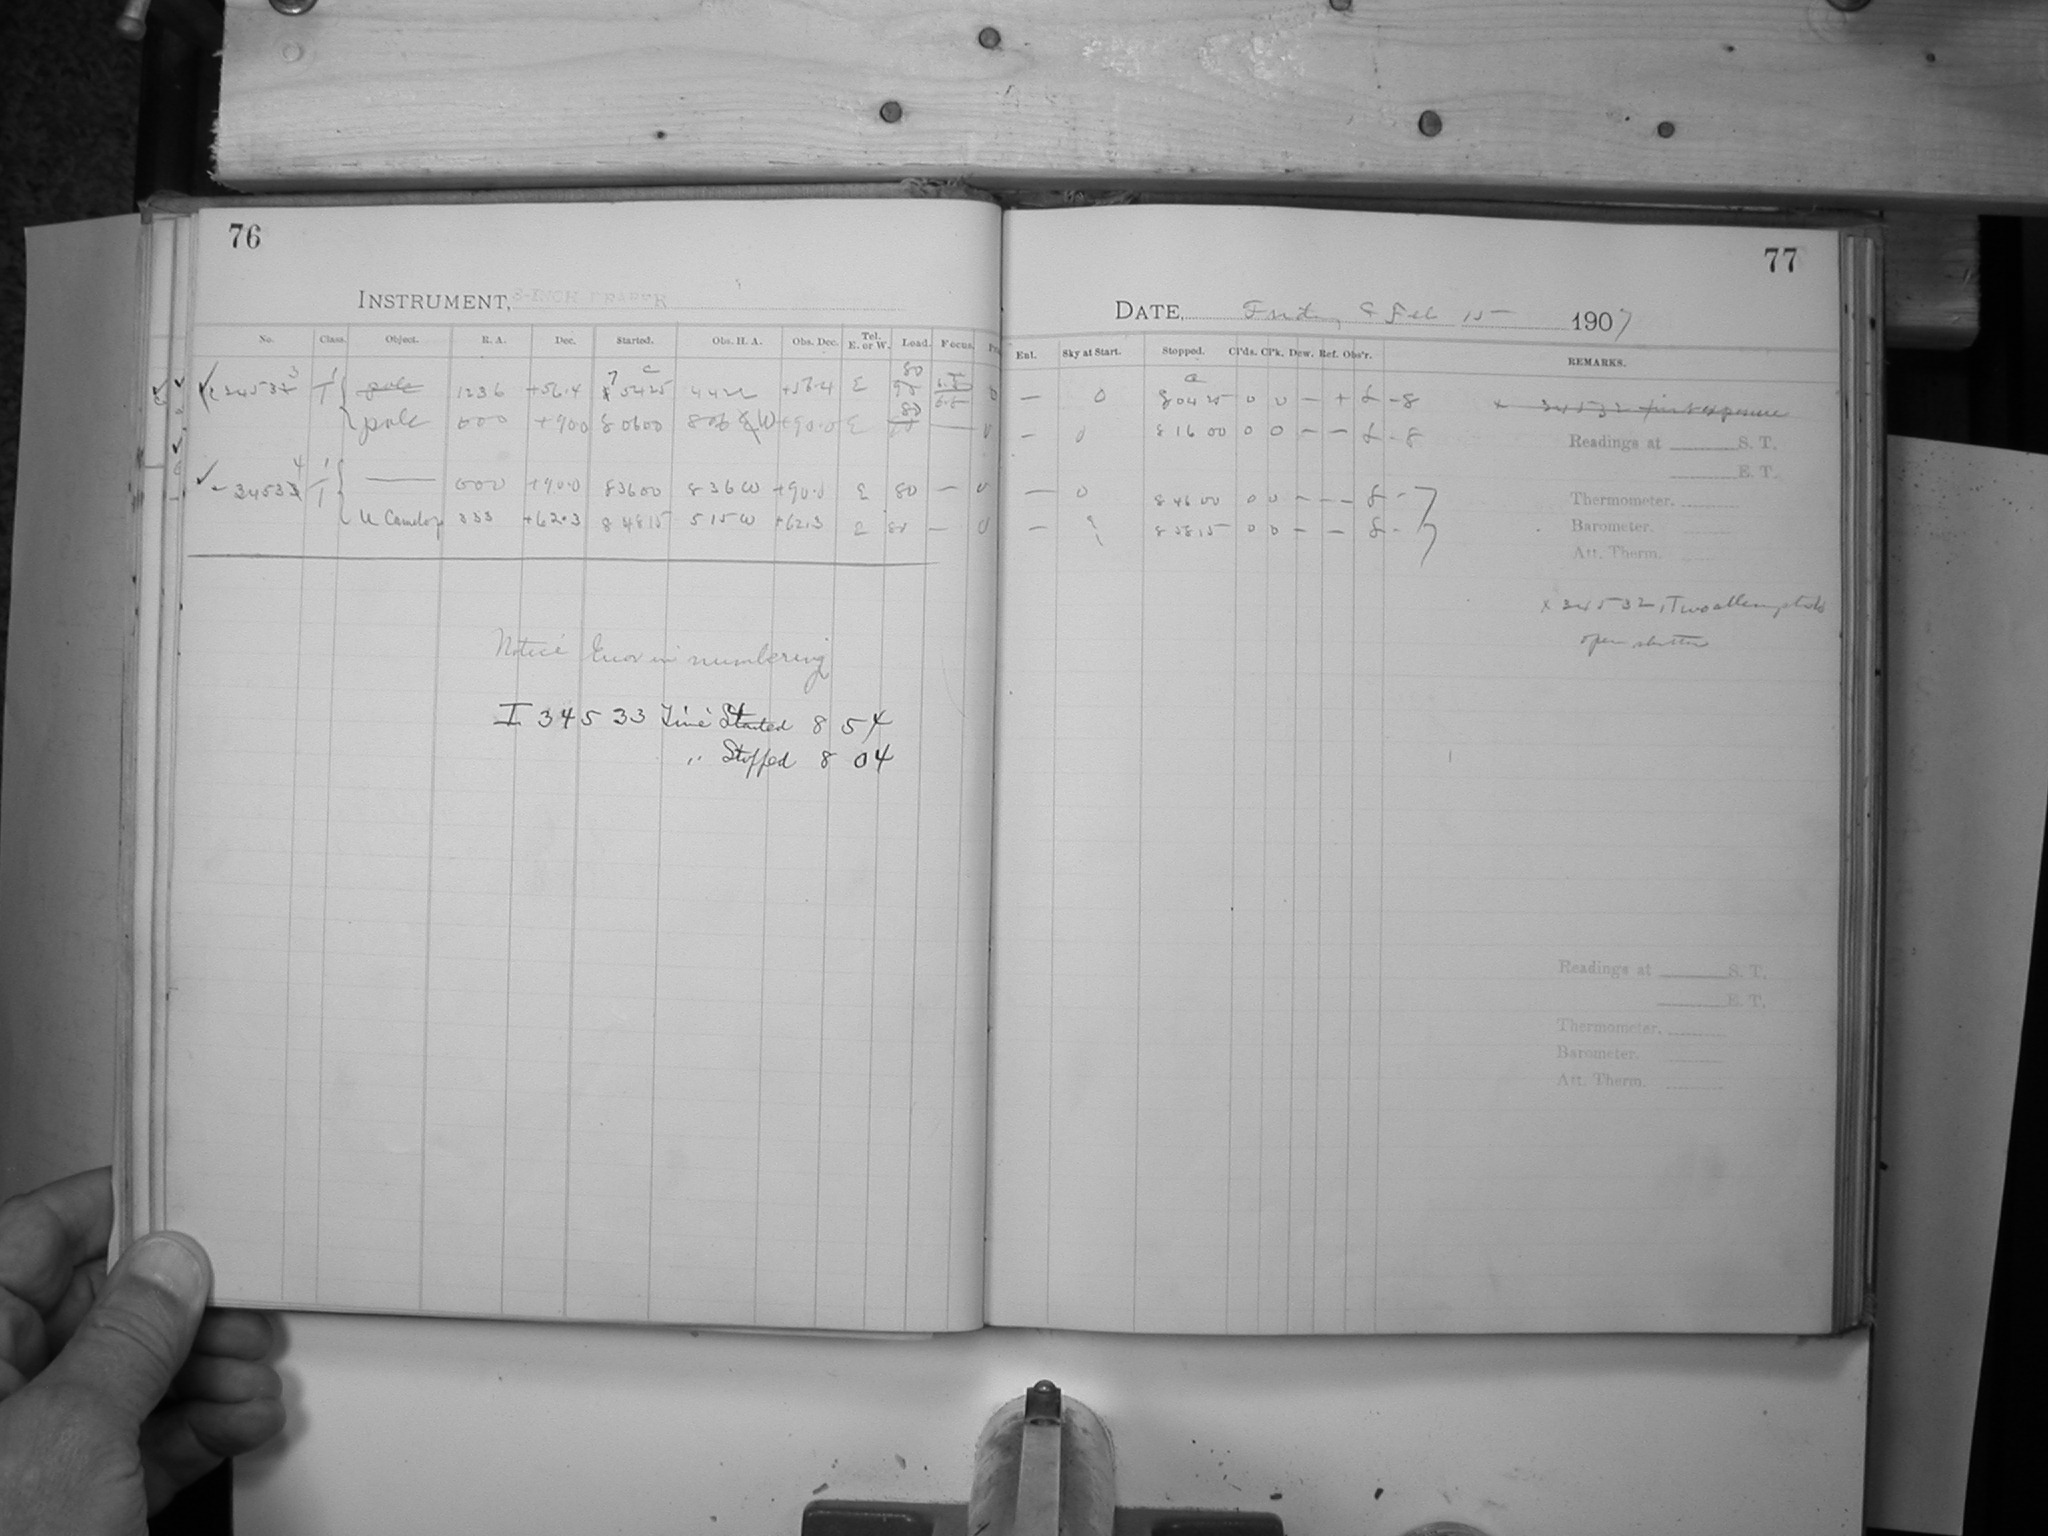 76
INSTRUMENT, 8-INCH DRAPER
No. Class. Object. R. A. Dec. Started. Obs. H. A. Obs. Dec. Tel. E. or W. Load. Focus.
3 7 c 80
34532 1 pole 1236 +56.4 5425 +56.4 E
pole 000 +90.0 80600 806 W +90.0 E
4
34533 1 —— 000 +90.0 83600 836 W +90.0 E 80 — 0
U Camelop 333 +62.3 84815 515 W +62.3 E 80 — 0
Notice Error in numbering
I 34533 Time Started 8 54
" Stopped 8 04
77
DATE, Friday Feb 15 1907
Ent. Sky at Start. Stopped. Cl'ds. Cl'k. Dew. Ref. Obs'r. REMARKS.
— 0 80425 0 0 — + - 8 x 34532 first exposure
— 0 81600 0 0 — — - 8
Readings at S. T.
E. T.
— 0 84600 0 0 — — - 7
— 85815 0 0 — — - 7
Thermometer.
Barometer.
Att. Therm.
x 34532, Two attempts to
open shutter
Readings at S. T.
E. T.
Thermometer.
Barometer.
Att. Therm.